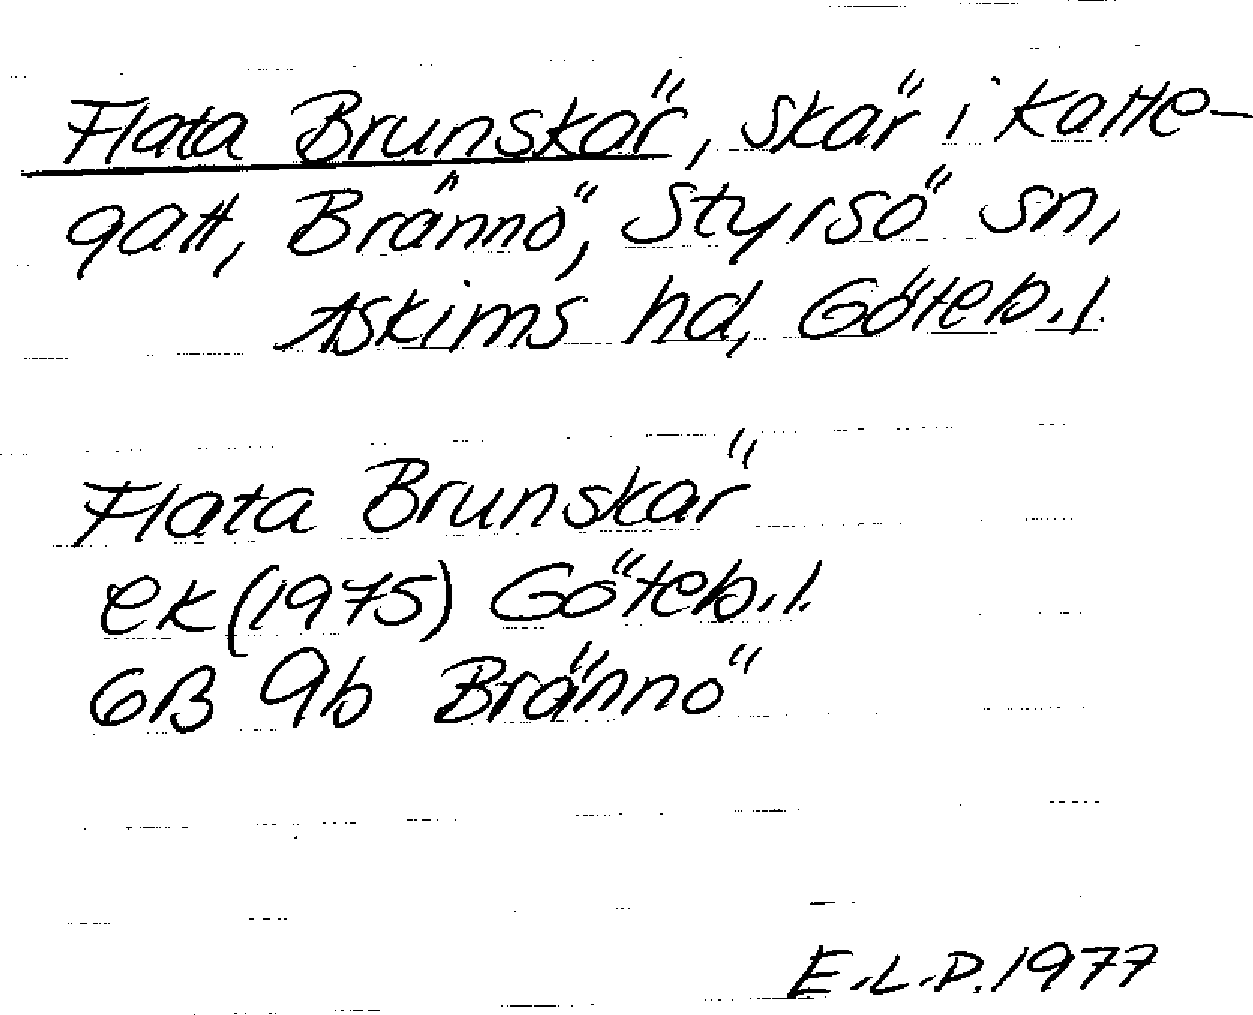 Flata Brunskär, skär i Katte-
gatt, Brännö, Styrsö sn,
Askims hd, Göteb.l.
Flata Brunskär
ek (1975) Göteb.l.
6B 9b Brännö
E.L.P. 1977